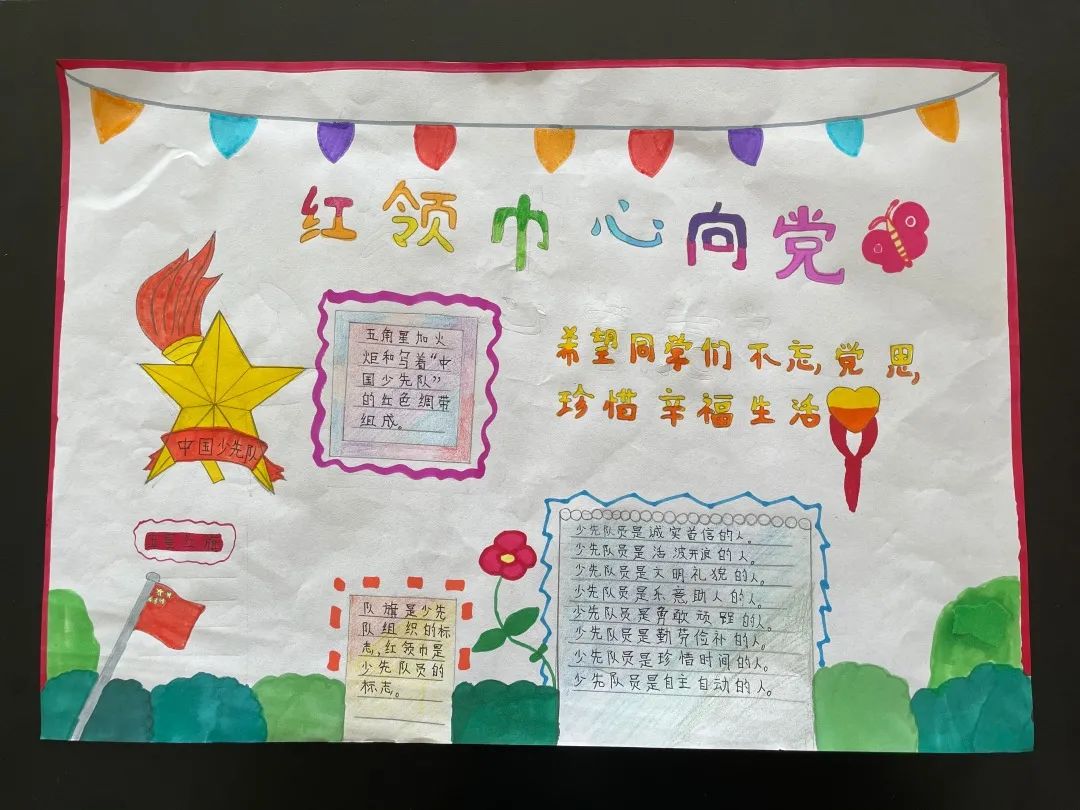 红领巾心向党
希望同学们不忘,党恩,
珍惜幸福生活
五角星加火
炬和写着“中
国少先队”
的红色绸带
组成。
中国少先队
少先队员是诚实首信的人。
少先队员是活波开浪的人。
少先队员是文明礼貌的人。
少先队员是乐意助人的人。
少先队员是勇敢顽强的人。
少先队员是勤劳俭补的人。
少先队员是珍惜时间的人。
少先队员是自主自动的人。
队旗是少先
队组织的标
志,红领巾是
少先队员的
标志。